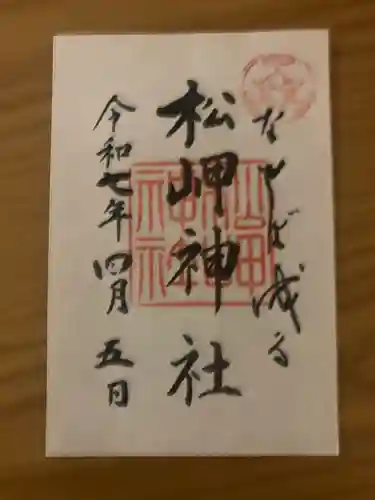 なせば成る
松岬神社
令和七年四月五日
松岬神社